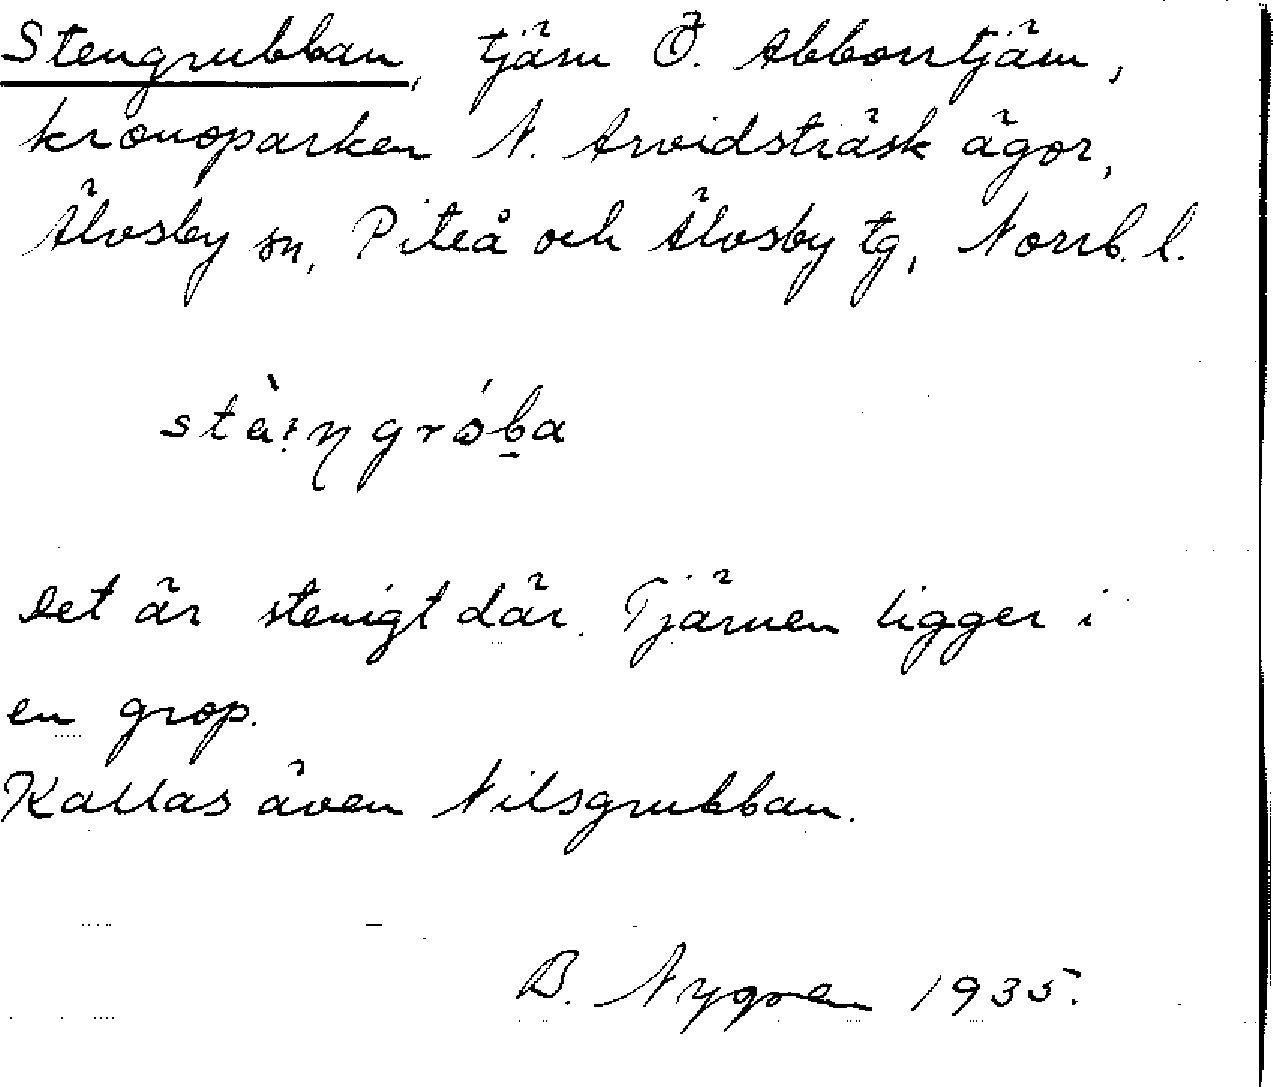 Stengrubban, tjärn Ö. Abborrtjärn,
kronoparken N. Arvidsträsk ägor,
Älvsby sn, Piteå och Älvsby tg, Norrb. l.
Det är stenigt där. Tjärnen ligger i
en grop.
Kallas även Nilsgrubban.
B. Nygren 1935.